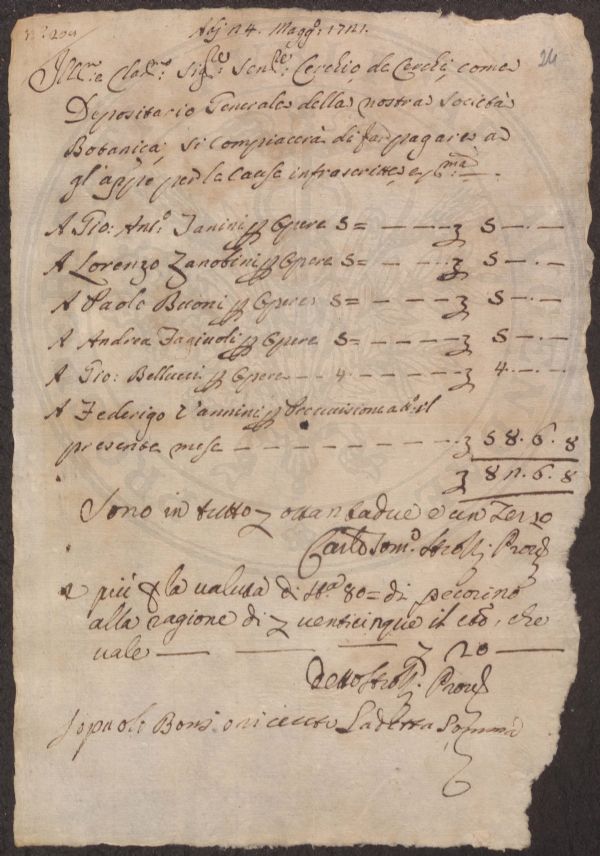 Adj 24. Maggo: 1721.
24
Illmo: e Clarmo: Sigre: Senre: Cerchio de Cerchi come
Depositario Generale della nostra Società
Botanica; si compiacerà di far pagare a
gl'appo per le Cause infrascritte
A Gio: Anto: Janini p Opere 5= — — — 5 —·—
A Lorenzo Zanobini p Opere 5= — — — 5 —·—
A Paolo Buoni p Opere 5= — — — — 5 —·—
A Andrea Fagiuoli p Opere 5= — — — — 5 —·—
A Gio: Bellucci p Opere — 4. — — — — 4. —·—
A Federigo Vannini p Provvisione a tt.o il
presente mese — — — — — — — 58. 6. 8
82. 6. 8
Sono in tutto ottantadue e un Terzo
Carlo Tomo. Strozzi Provre
e più p la valuta di 80= di pecorino
alla ragione di venticinque il cto, che
vale — — — — 20 —
detto Strozzi Provre
Io paolo Boni o riceuto La detta Somma